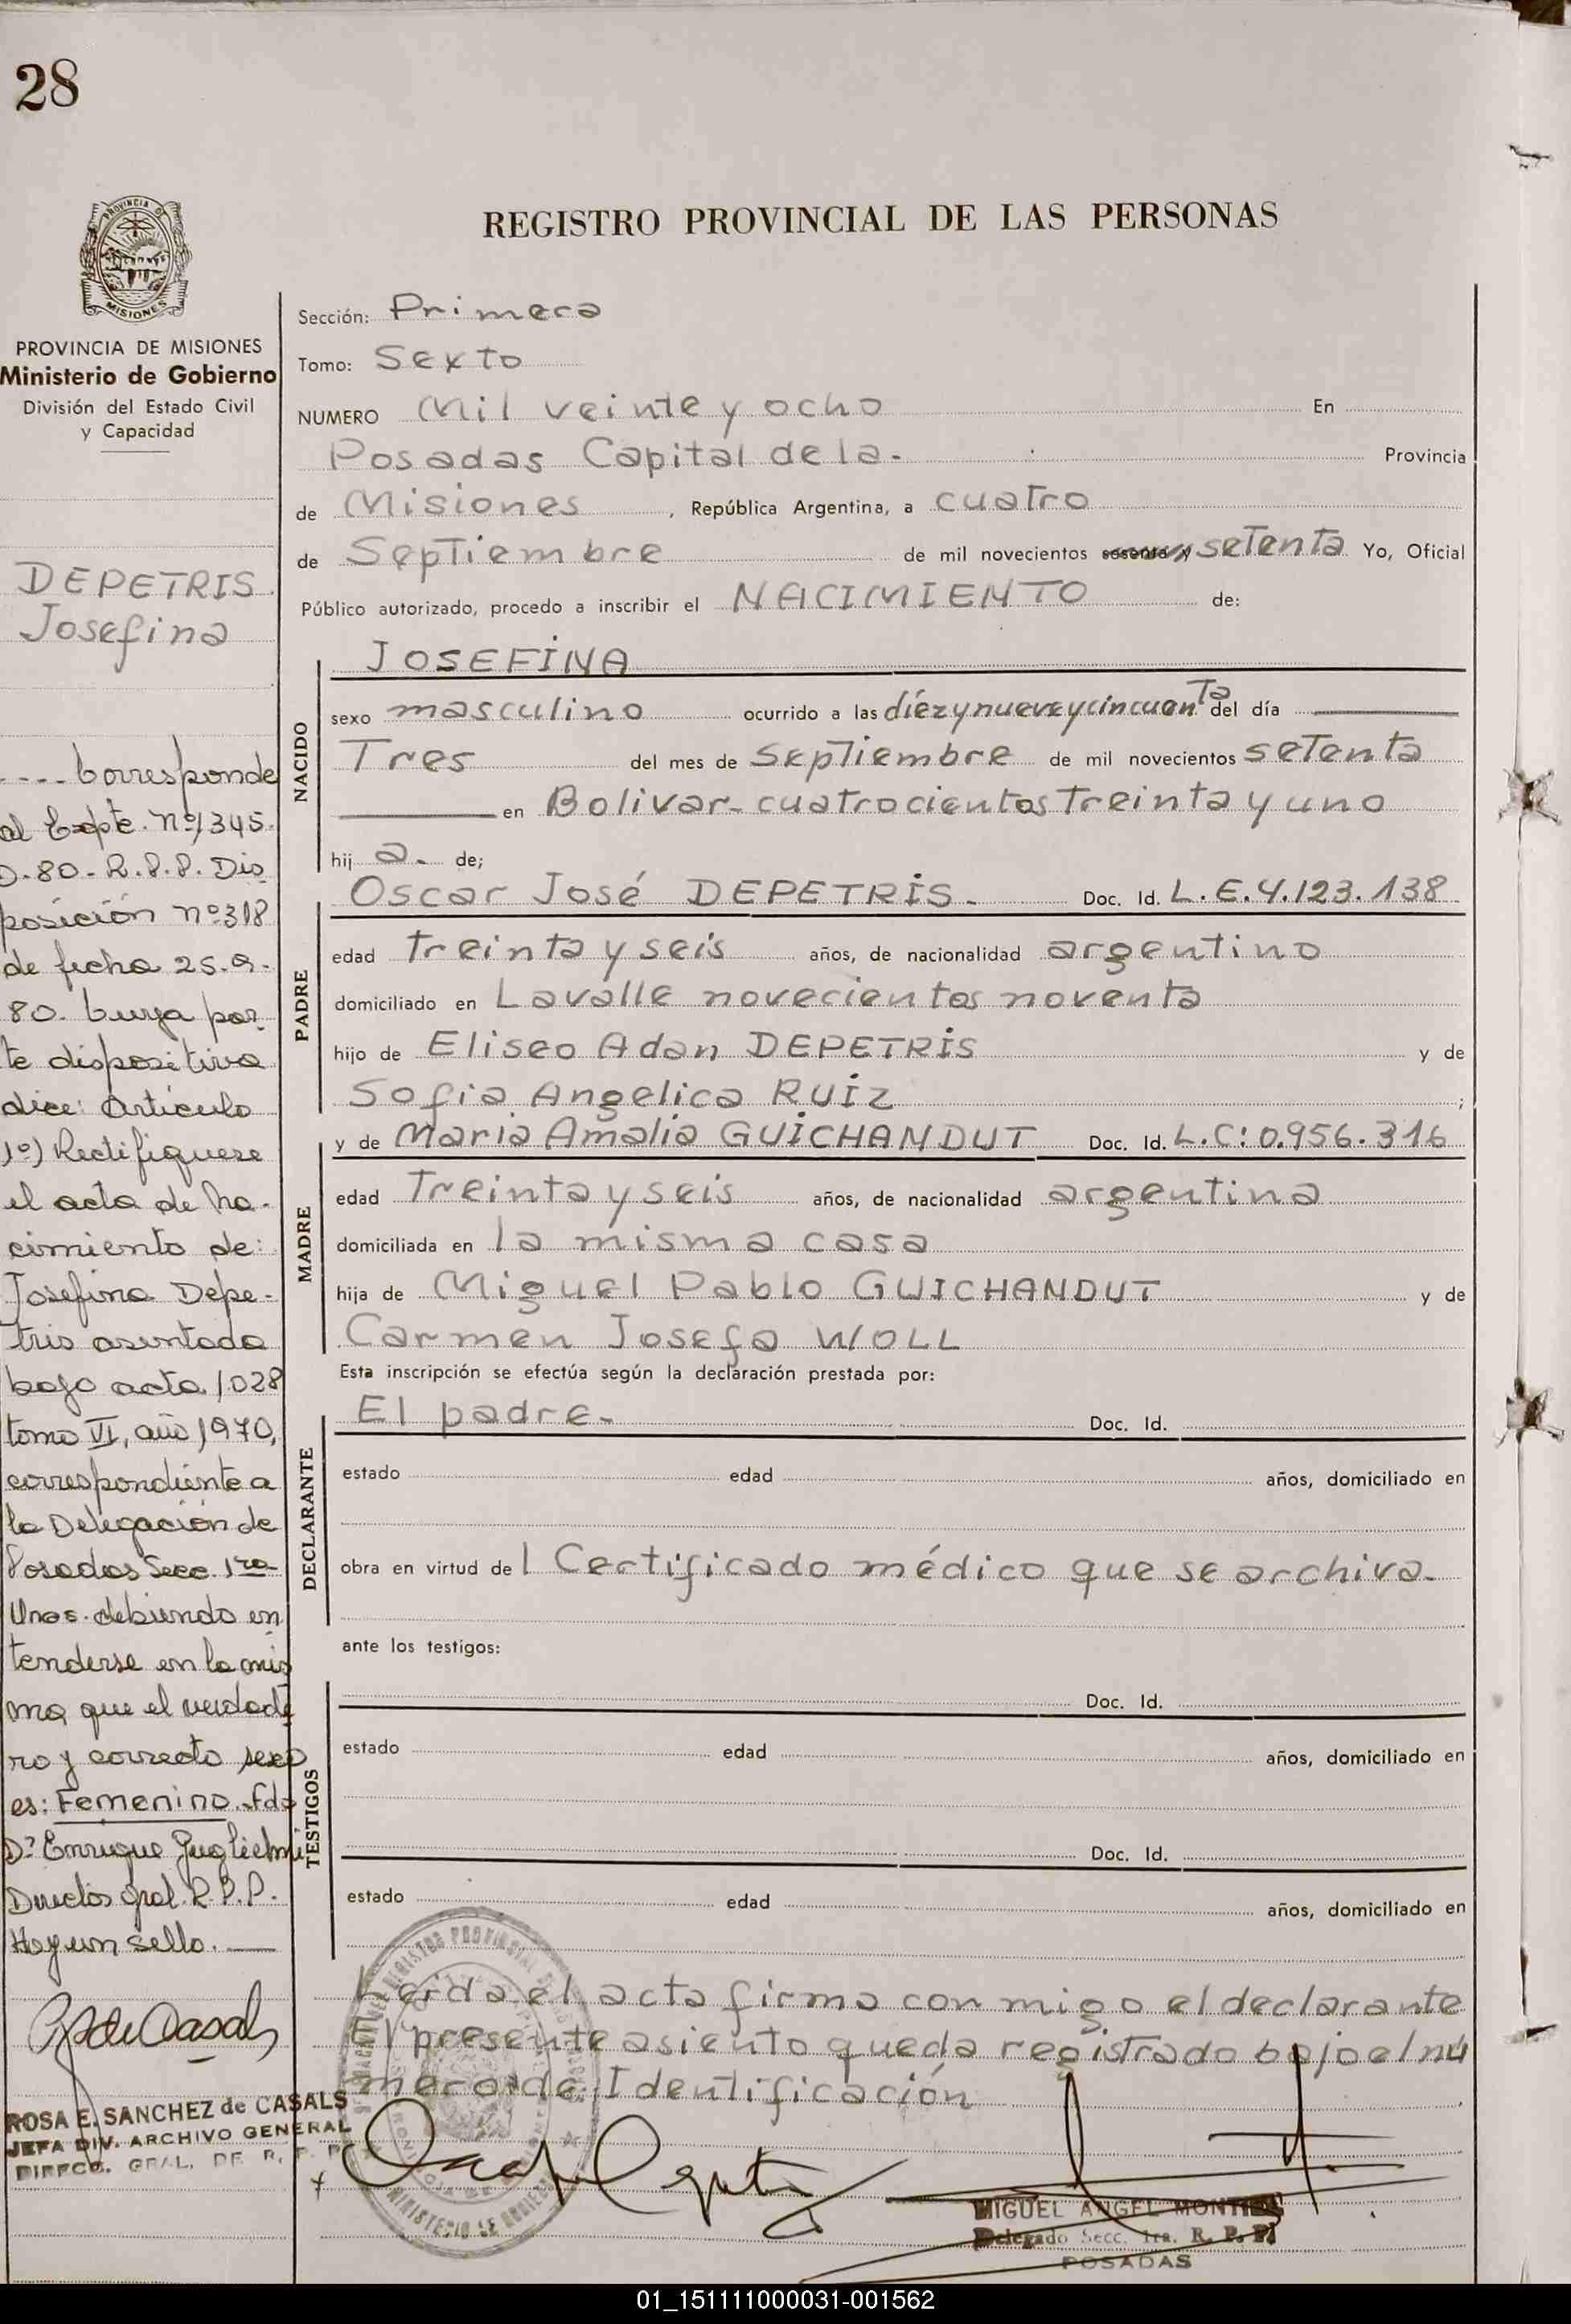 28
REGISTRO PROVINCIAL DE LAS PERSONAS
PROVINCIA DE
MISIONES
PROVINCIA DE MISIONES
Ministerio de Gobierno
División del Estado Civil
y Capacidad
DEPETRIS
Josefina
.... Corresponde
al Expte. nº 1345.
D-80-R.P.P. Dis
posición nº 318
de fecha 25.9.
80. Cuya par
te dispositiva
dice: Artículo
1º) Rectifiquese
el acta de na-
cimiento de:
Josefina Depe-
tris asentada
bajo acta 1028
tomo VI, año 1970,
correspondiente a
la Delegación de
Posadas Secc. 1ra
Mnes. debiendo en
tenderse en la mis
ma que el verdade
ro y correcto sexo
es: Femenino. Fdo
Dr Enrique Guglielmi
Director Gral. R.P.P.
Hay un sello. —
ROSA E. SANCHEZ de CASALS
JEFA DIV. ARCHIVO GENERAL
DIRECC. GRAL. DE R. P. P.
Sección: Primera
Tomo: Sexto
NUMERO Mil veinte y ocho En
Posadas Capital de la - Provincia
de Misiones , República Argentina, a cuatro
de Septiembre de mil novecientos sesenta y setenta Yo, Oficial
Público autorizado, procedo a inscribir el NACIMIENTO de:
JOSEFINA
NACIDO
sexo masculino ocurrido a las diez y nueve y cincuenta del día
Tres del mes de Septiembre de mil novecientos setenta
en Bolivar - cuatrocientos treinta y uno
hij a. de;
Oscar José DEPETRIS - Doc. Id. L.E.4.123.138
PADRE
edad treinta y seis años, de nacionalidad argentino
domiciliado en Lavalle novecientos noventa
hijo de Eliseo Adan DEPETRIS y de
Sofia Angelica RUIZ ;
y de Maria Amalia GUICHANDUT Doc. Id. L.C: 0.956.316
MADRE
edad Treinta y seis años, de nacionalidad argentina
domiciliada en la misma casa
hija de Miguel Pablo GUICHANDUT y de
Carmen Josefa WOLL
Esta inscripción se efectúa según la declaración prestada por:
El padre - Doc. Id.
DECLARANTE
estado edad años, domiciliado en
obra en virtud de l Certificado médico que se archiva.
ante los testigos:
Doc. Id.
TESTIGOS
estado edad años, domiciliado en
Doc. Id.
estado edad años, domiciliado en
Leida el acta firma conmigo el declarante
El presente asiento queda registrado bajo el nú
mero de Identificación
MIGUEL ANGEL MONTIEL
Delegado Secc. 1ra. R. P. P.
POSADAS
01_151111000031-001562